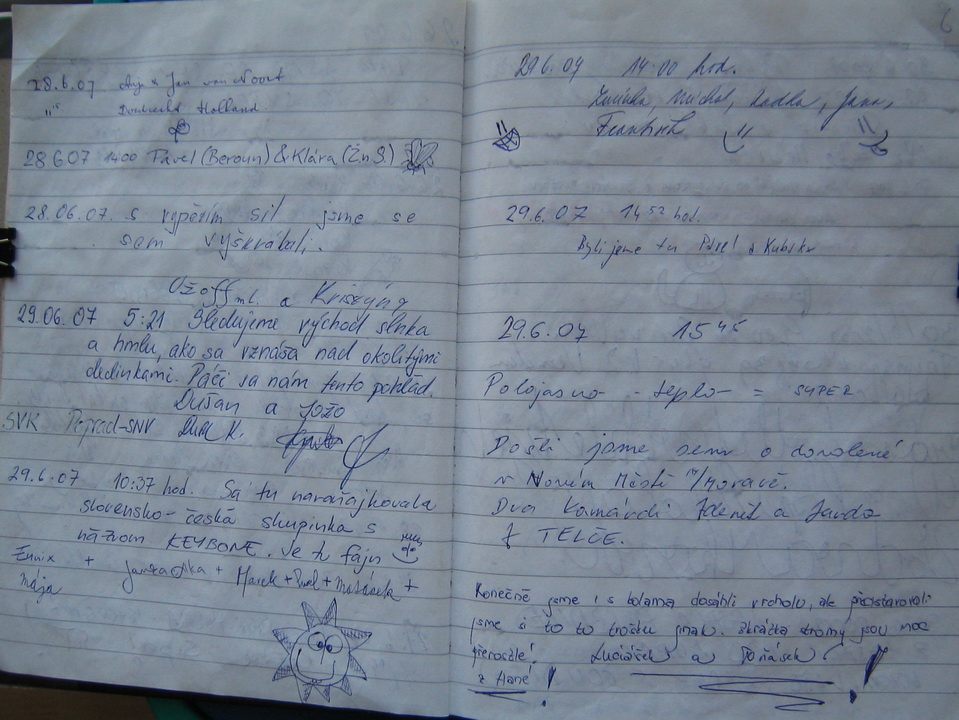 28.6.07 Jan van Noort
" Holland
28 6 07 1400 Pavel (Beroun) & Klára (Žn S.)
28.06.07. s vypětím sil jsme se
sem vyškrábali.
Ožoff ml. a Kristýna
29.06.07 5:21 Sledujeme východ slnka
a hmlu, ako sa vznáša nad okolitými
dedinkami. Páči sa nám tento pohľad.
Dušan a Jožo
SVK Poprad-SNV
29.6.07 10:37 hod. Sa tu naraňajkovala
slovensko-česká skupinka s
názvom KEYBONE. Je tu fajn
+ + Marek + Pavel + +
Mája
6
29.6.07 14:00 hod.
Michal, Radka, Jana,
František
29.6.07 14 52 hod.
Byli jsme tu Pavel a
29.6.07 15 45
Polojasno - teplo - = SUPER
Došli jsme sem o dovolené
v Novém Městě n/Moravě.
Dva kamárdi Zdeněk a Jarda
z TELČE.
Konečně jsme i s kolama dosáhli vrcholu, ale představovali
jsme si to to trošku jinak. Zkrátka stromy jsou moc
přerostlé! a
z Hané!